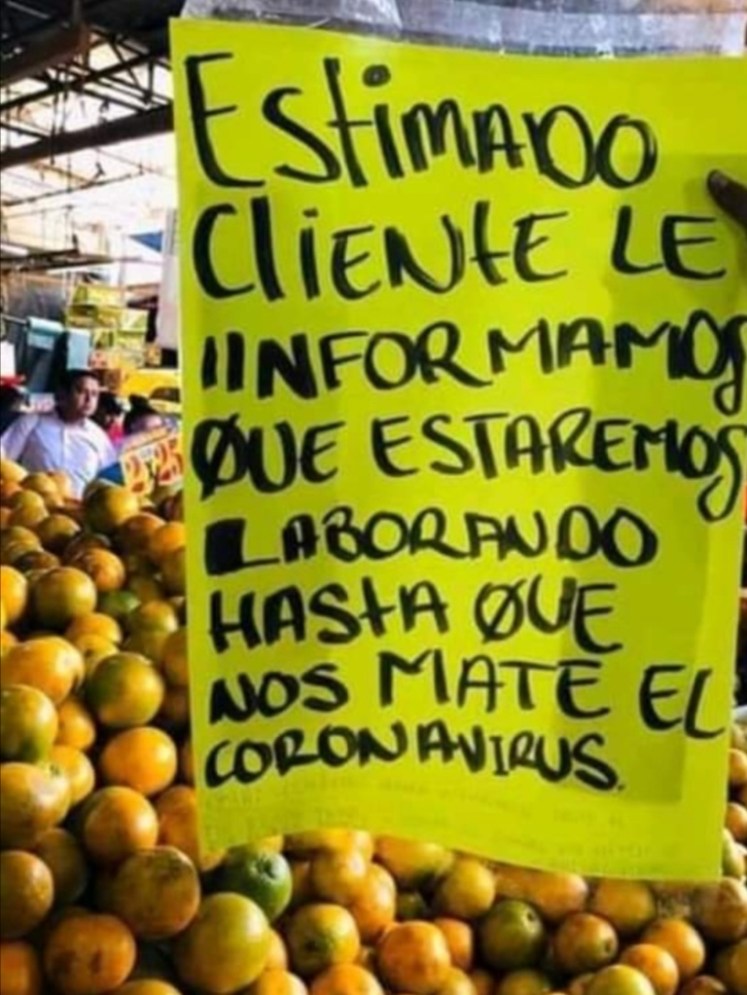 EStiMADO
CliENtE LE
IINFORMAMOS
QUE ESTAREMOS
LABORANDO
HAStA QUE
NOS MATE EL
CORONAVIRUS.